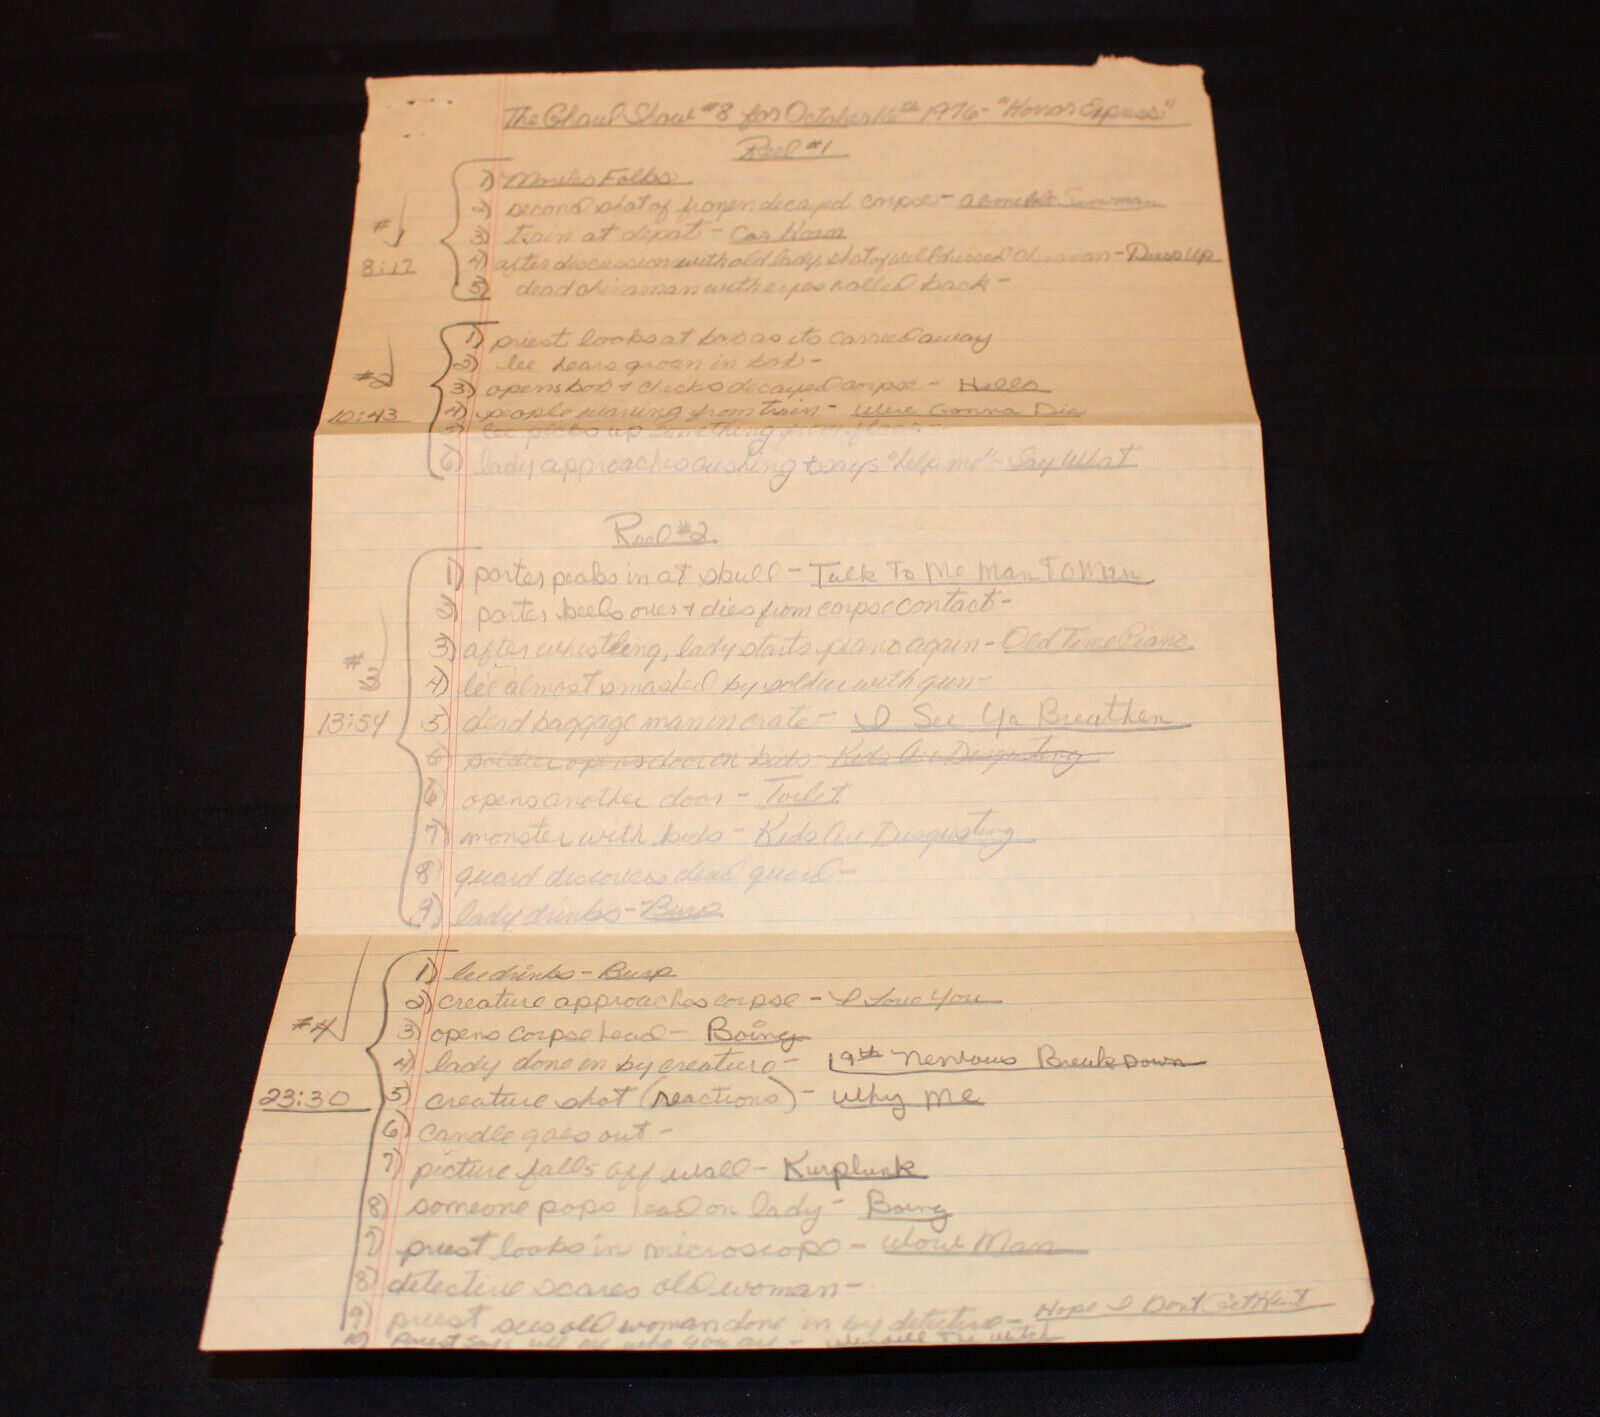 The Ghoul Show #8 for October 16th 1976 - "Horror Express"
Reel #1
1) Movies Folks
2) second shot of frozen decayed corpse - abominable Snowman
#1
3) train at depot - Car Horn
8:17
4) after discussion with old lady, shot of well dressed Chinaman - Dress Up
5) dead chinaman with eyes rolled back -
1) priest looks at box as its carried away
2) lee hears groan in box -
#2
3) opens box + checks decayed corpse - Hello
10:43
4) people waving from train - We're Gonna Die
5) lee picks up something from floor -
6) lady approaches cushing + says "help me" - Say What
Reel #2
1) porter peaks in at skull - Talk To Me Man To Man
2) porter keels over + dies from corpse contact -
#3
3) after whistling, lady starts piano again - Old Time Piano
4) lee almost smashed by soldier with gun -
13:54
5) dead baggage man in crate - I See Ya Breathen
6) soldier opens door on kids - Kids Are Disgusting
6) opens another door - Toilet
7) monster with kids - Kids Are Disgusting
8) guard discovers dead guard -
9) lady drinks - Burp
1) lee drinks - Burp
2) creature approaches corpse - I Love You
#4
3) opens corpse head - Boing
4) lady done in by creature - 19th Nervous Breakdown
23:30
5) creature shot (reactions) - Why Me
6) candle goes out -
7) picture falls off wall - Kurplunk
8) someone pops head on lady - Boing
7) priest looks in microscope - Wow Man
8) detective scares old woman -
9) priest sees old woman done in by detective - Hope I Dont Get Hurt
10) Priest says who you are -